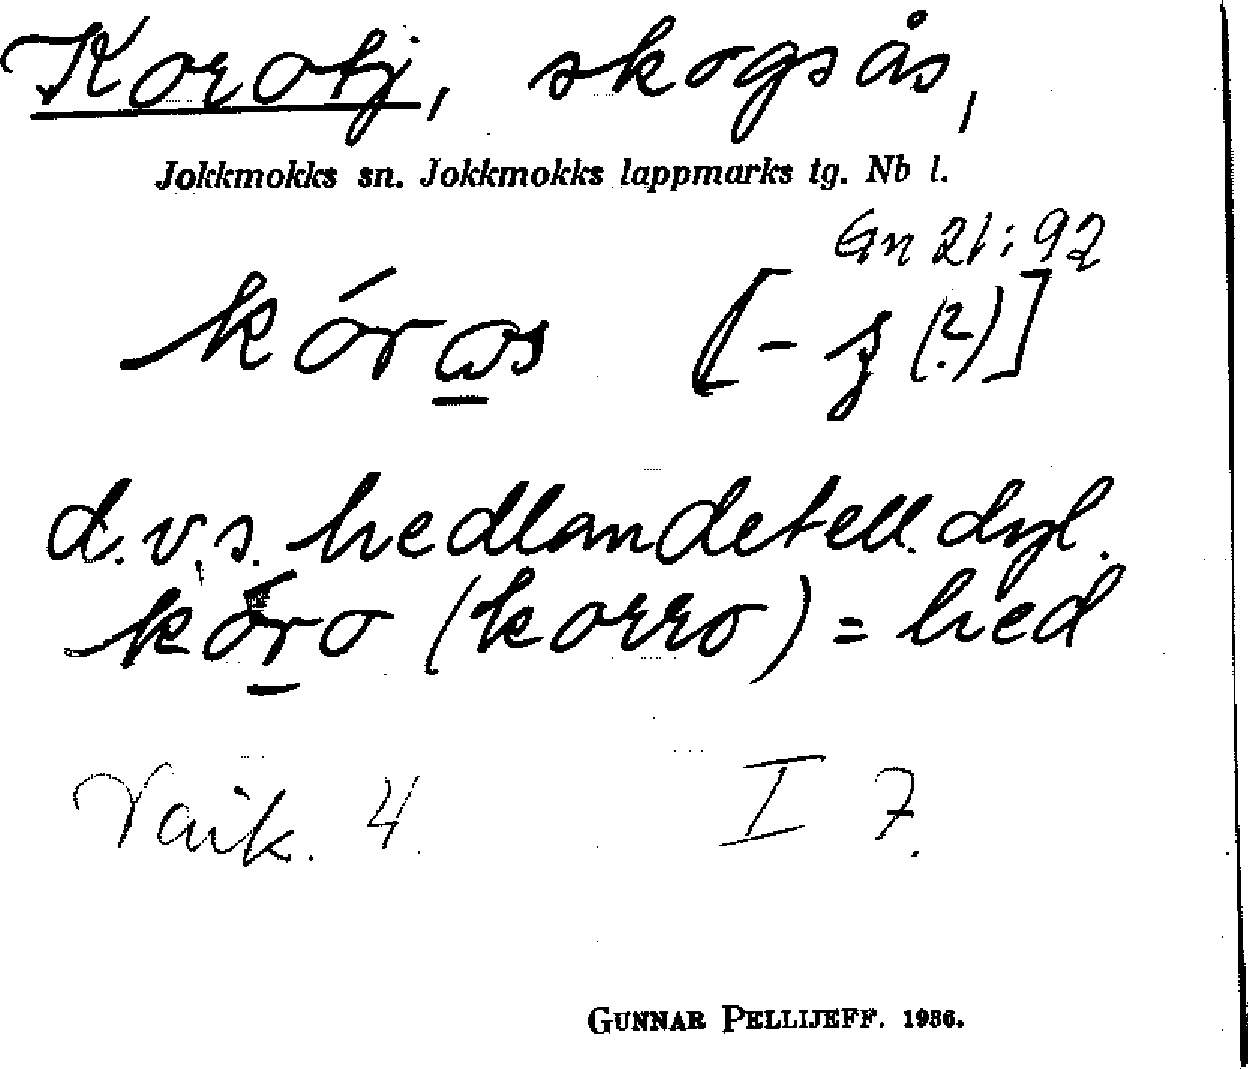 Korotj, skogsås,
Jokkmokks sn. Jokkmokks lappmarks tg. Nb l.
Gn 21:92
kóras [-ʒ (?)]
d.v.s. hedlandet ell. dyl.
kóro (korro) = hed
Vaik. 4. I 7.
GUNNAR PELLIJEFF. 1936.